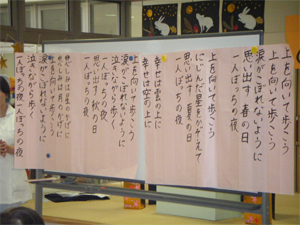 上を向いて歩こう
涙がこぼれないように
思い出す 春の日
一人ぼっちの夜
上を向いて歩こう
にじんだ星をかぞえて
思い出す 夏の日
一人ぼっちの夜
幸せは雲の上に
幸せは空の上に
上を向いて歩こう
涙がこぼれないように
泣きながら歩く
一人ぼっちの夜
思い出す 秋の日
一人ぼっちの夜
かげに
月のかげに
上を向いて歩こう
涙がこぼれないように
泣きながら歩く
一人ぼっちの夜